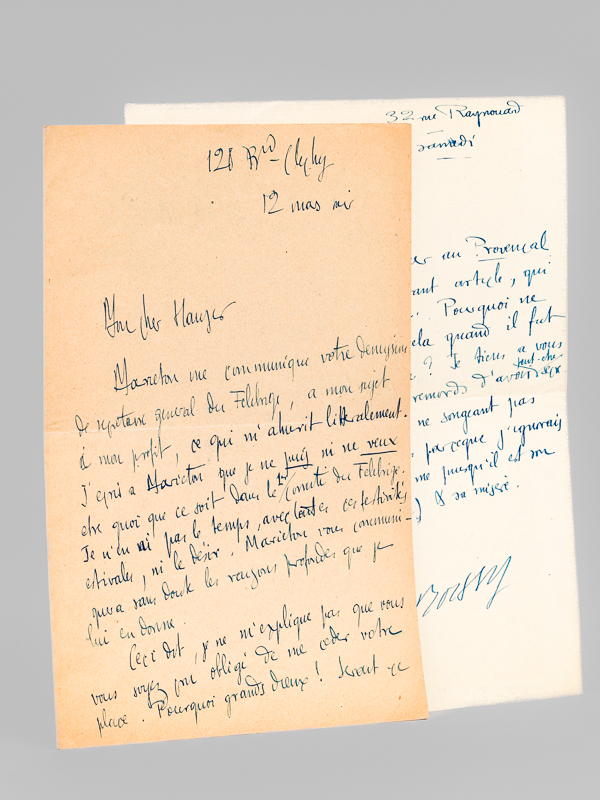 128 Bd Clichy
12 mars
Mon cher Hauser
Marieton me communique votre demission
de secretaire general du Felibrige, a mon sujet
à mon profit, ce qui m'ahurit litteralement.
J'ecris a Marieton que je ne puis ni ne veux
etre quoi que ce soit dans le Comité du Felibrige.
Je n'en ai pas le temps, avec toutes ces festivités
estivales, ni le désir. Marieton vous communi-
quera sans doute les raisons profondes que je
lui en donne.
Ceci dit, je ne m'explique pas que vous
vous soyez cru obligé de me céder votre
place. Pourquoi grands dieux ! Serait-ce
32 rue Raynouard
samedi
au Provençal
article, qui
Pourquoi ne
cela quand il fut
? Je tiens a vous
peut-etre
remords d'avoir
ne songeant pas
parceque j'ignorais
me puisqu'il est son
) & sa misere.
Boissy